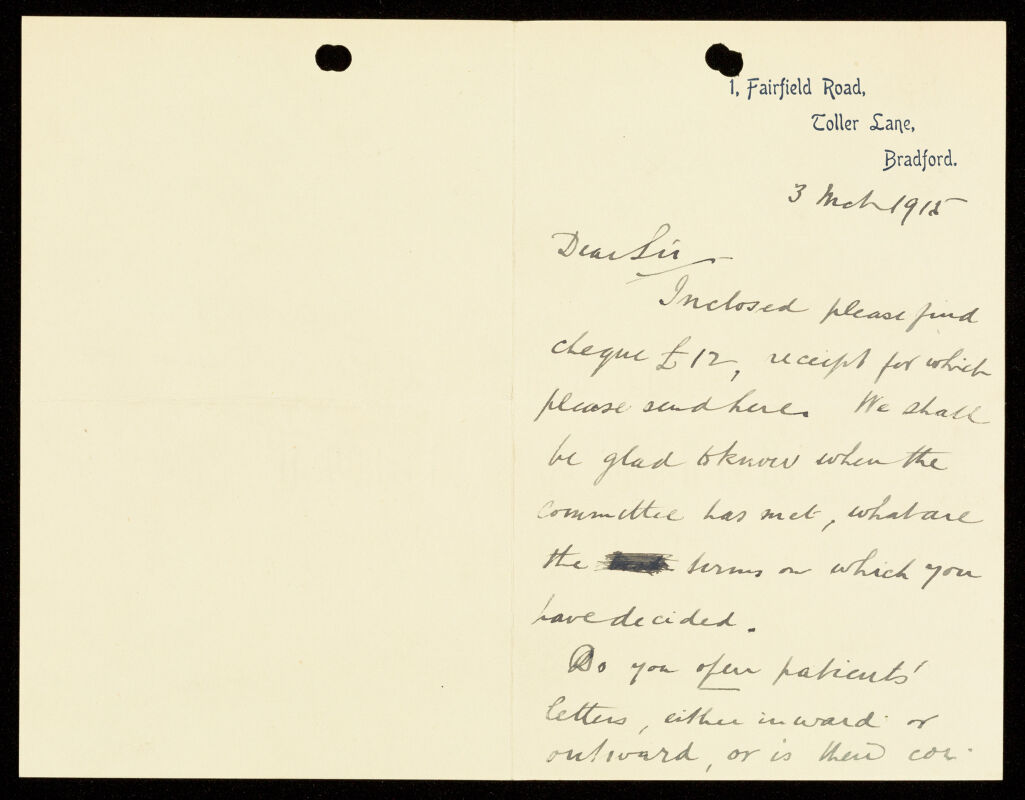 1, Fairfield Road,
Toller Lane,
Bradford.
3 Mch 1915
Dear Sir
Inclosed please find
cheque £12, receipt for which
please send here. We shall
be glad to know when the
committee has met, what are
the terms on which you
have decided.
Do you open patients'
letters, either inward or
outward, or is their cor-